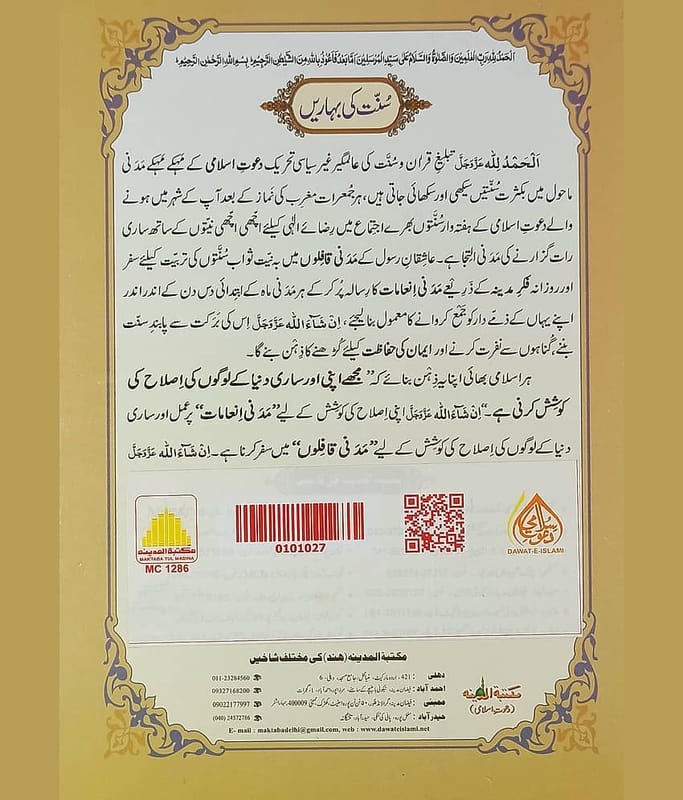 اَلْحَمْدُ لِلّٰہِ رَبِّ الْعٰلَمِیْنَ وَالصَّلٰوۃُ وَالسَّلَامُ عَلٰی سَیِّدِ الْمُرْسَلِیْنَ اَمَّا بَعْدُ فَاَعُوْذُ بِاللّٰہِ مِنَ الشَّیْطٰنِ الرَّجِیْمِ بِسْمِ اللّٰہِ الرَّحْمٰنِ الرَّحِیْمِ
سُنّت کی بہاریں
اَلْحَمْدُ لِلّٰہ عَزَّوَجَلَّ تبلیغِ قراٰن و سُنّت کی عالمگیر غیر سیاسی تحریک دعوتِ اسلامی کے مہکے مہکے مَدَنی
ماحول میں بکثرت سُنّتیں سیکھی اور سکھائی جاتی ہیں، ہر جُمعرات مغرِب کی نَماز کے بعد آپ کے شہر میں ہونے
والے دعوتِ اسلامی کے ہفتہ وار سُنّتوں بھرے اجتماع میں رِضائے الٰہی کیلئے اچّھی اچّھی نیّتوں کے ساتھ ساری
رات گزارنے کی مَدَنی التجا ہے۔ عاشِقانِ رسول کے مَدَنی قافِلوں میں بہ نیّتِ ثواب سُنّتوں کی تربیت کیلئے سفر
اور روزانہ فکرِ مدینہ کے ذَرِیعے مَدَنی اِنعامات کا رسالہ پُر کر کے ہر مَدَنی ماہ کے ابتدائی دس دن کے اندر اندر
اپنے یہاں کے ذمّے دار کو جَمع کروانے کا معمول بنا لیجئے، اِنْ شَآءَ اللّٰہ عَزَّوَجَلَّ اِس کی بَرَکت سے پابندِ سنّت
بننے، گُناہوں سے نفرت کرنے اور ایمان کی حفاظت کیلئے کُڑھنے کا ذِہن بنے گا۔
ہر اسلامی بھائی اپنا یہ ذِہن بنائے کہ ”مجھے اپنی اور ساری دنیا کے لوگوں کی اِصلاح کی
کوشش کرنی ہے۔“ اِنْ شَآءَ اللّٰہ عَزَّوَجَلَّ اپنی اِصلاح کی کوشش کے لیے ”مَدَنی اِنعامات“ پر عمل اور ساری
دنیا کے لوگوں کی اِصلاح کی کوشش کے لیے ”مَدَنی قافِلوں“ میں سفر کرنا ہے۔ اِنْ شَآءَ اللّٰہ عَزَّوَجَلَّ
مكتبة المدينه
MAKTABA TUL MADINA
MC 1286
0101027
دعوتِ اسلامی
DAWAT-E-ISLAMI
مکتبۃ المدینہ (ھند) کی مختلف شاخیں
دھلی : 421، اردو مارکیٹ، مٹیا محل، جامع مسجد، دہلی۔ 6 011-23284560
احمد آباد : فیضانِ مدینہ، 09327168200
ممبئی : فیضانِ مدینہ، 400009 مہاراشٹر 09022177997
حیدرآباد : مغل پورہ، پانی کی ٹنکی، حیدرآباد، تلنگانہ (040) 24572786
E- mail : maktabadelhi@gmail.com, web : www.dawateislami.net
مکتبۃ المدینہ
(دعوتِ اسلامی)